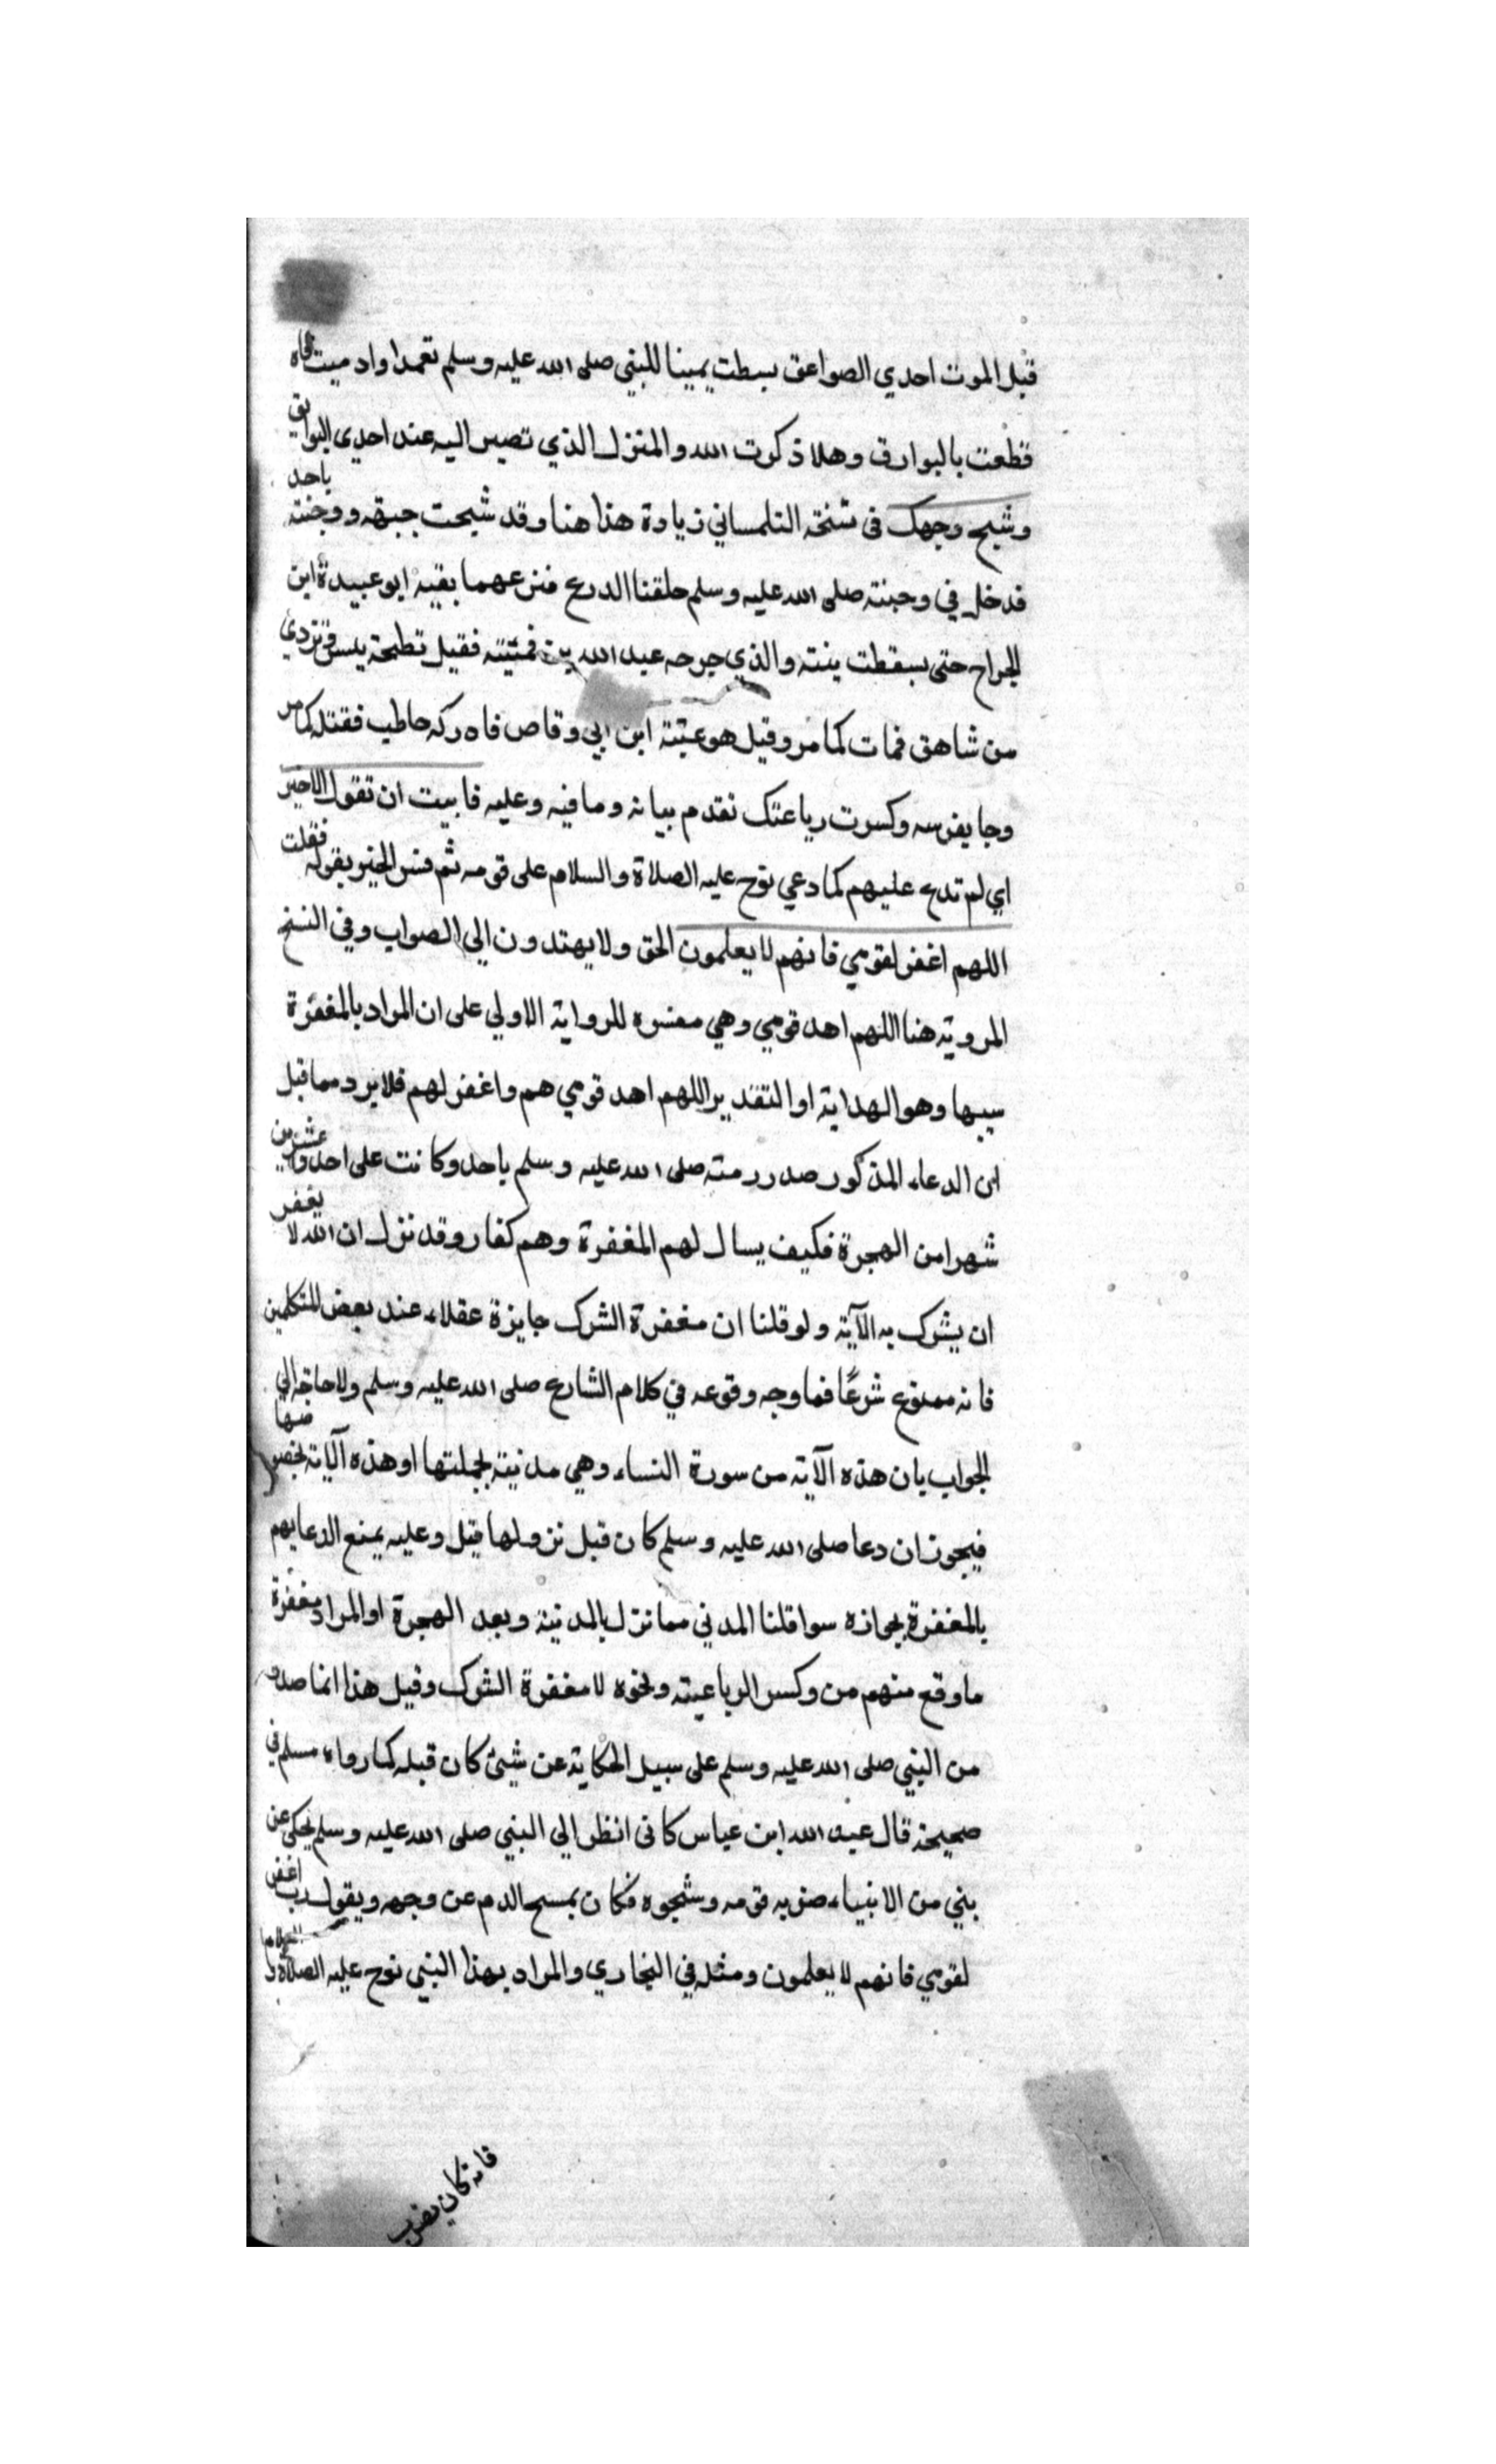 قبل الموت احدي الصواعق بسطت يمينا للنبي صلى الله عليه وسلم تعمدا وادميت فاه
قطعت بالبوارق وهلا ذكرت الله والمنزل الذي تصير اليه عند احدى البوايق
وشيح وجهك فى نسخة التلمساني زيادة هذا هنا وقد شيحت جبهته ووجنته باحد
فدخل في وجنته صلى الله عليه وسلم حلقتا الدرع فنزعهما بفيه ابو عبيدة ابن
الجراح حتى سقطت ثنيته والذي جرحه عبد الله بن قمئته فقيل نطحه تيس فتردي
من شاهق فمات كما مر وقيل هو عتبة ابن ابي وقاص فادركه حاطب فقتله كما مر
وجا بفرسه وكسرت رباعتك تقدم بيانه وما فيه وعليه فابيت ان تقول الاخير
اي لم تدع عليهم كما دعي نوح عليه الصلاة والسلام على قومه ثم فسر الخير بقوله فقلت
اللهم اغفر لقومي فانهم لا يعلمون الحق ولا يهتدون الي الصواب وفي النسخ
المروية هنا اللهم اهد قومي وهي مفسره للرواية الاولي على ان المراد بالمغفرة
سببها وهو الهداية او التقدير اللهم اهد قومي هم واغفر لهم فلا يرد مما قيل
ان الدعاء المذكور صدر منه صلى الله عليه وسلم باحد وكانت على احد وعشرين
شهرا من الهجرة فكيف يسال لهم المغفرة وهم كفار وقد نزل ان الله لا يغفر
ان يشرك به الآية ولو قلنا ان مغفرة الشرك جايزة عقلاء عند بعض المتكلمين
فانه ممنوع شرعًا فما وجه وقوعه في كلام الشارع صلى الله عليه وسلم ولا حاجة الي
الجواب بان هذه الآية من سورة النساء وهي مدنية بجملتها او هذه الآية بخصوصها
فيجوز ان دعا صلى الله عليه وسلم كان قبل نزولها قيل وعليه يمنع الدعا لهم
بالمغفرة بجوازه سوا قلنا المدني مما نزل بالمدينة وبعد الهجرة او المراد مغفرة
ما وقع منهم من وكسر الرباعيته ونحوه لا مغفرة الشرك وقيل هذا انما صدر
من النبي صلى الله عليه وسلم على سبيل الحكاية عن شيئ كان قبله كما رواه مسلم في
صحيحه قال عبد الله ابن عباس كانى انظر الي النبي صلى الله عليه وسلم يحكى عن
نبي من الانبياء ضربه قومه وشجوه فكان يمسح الدم عن وجهه ويقول رب اغفر
لقومي فانهم لا يعلمون ومثله في البخاري والمراد بهذا النبي نوح عليه الصلاة والسلام
فانه كان يضرب